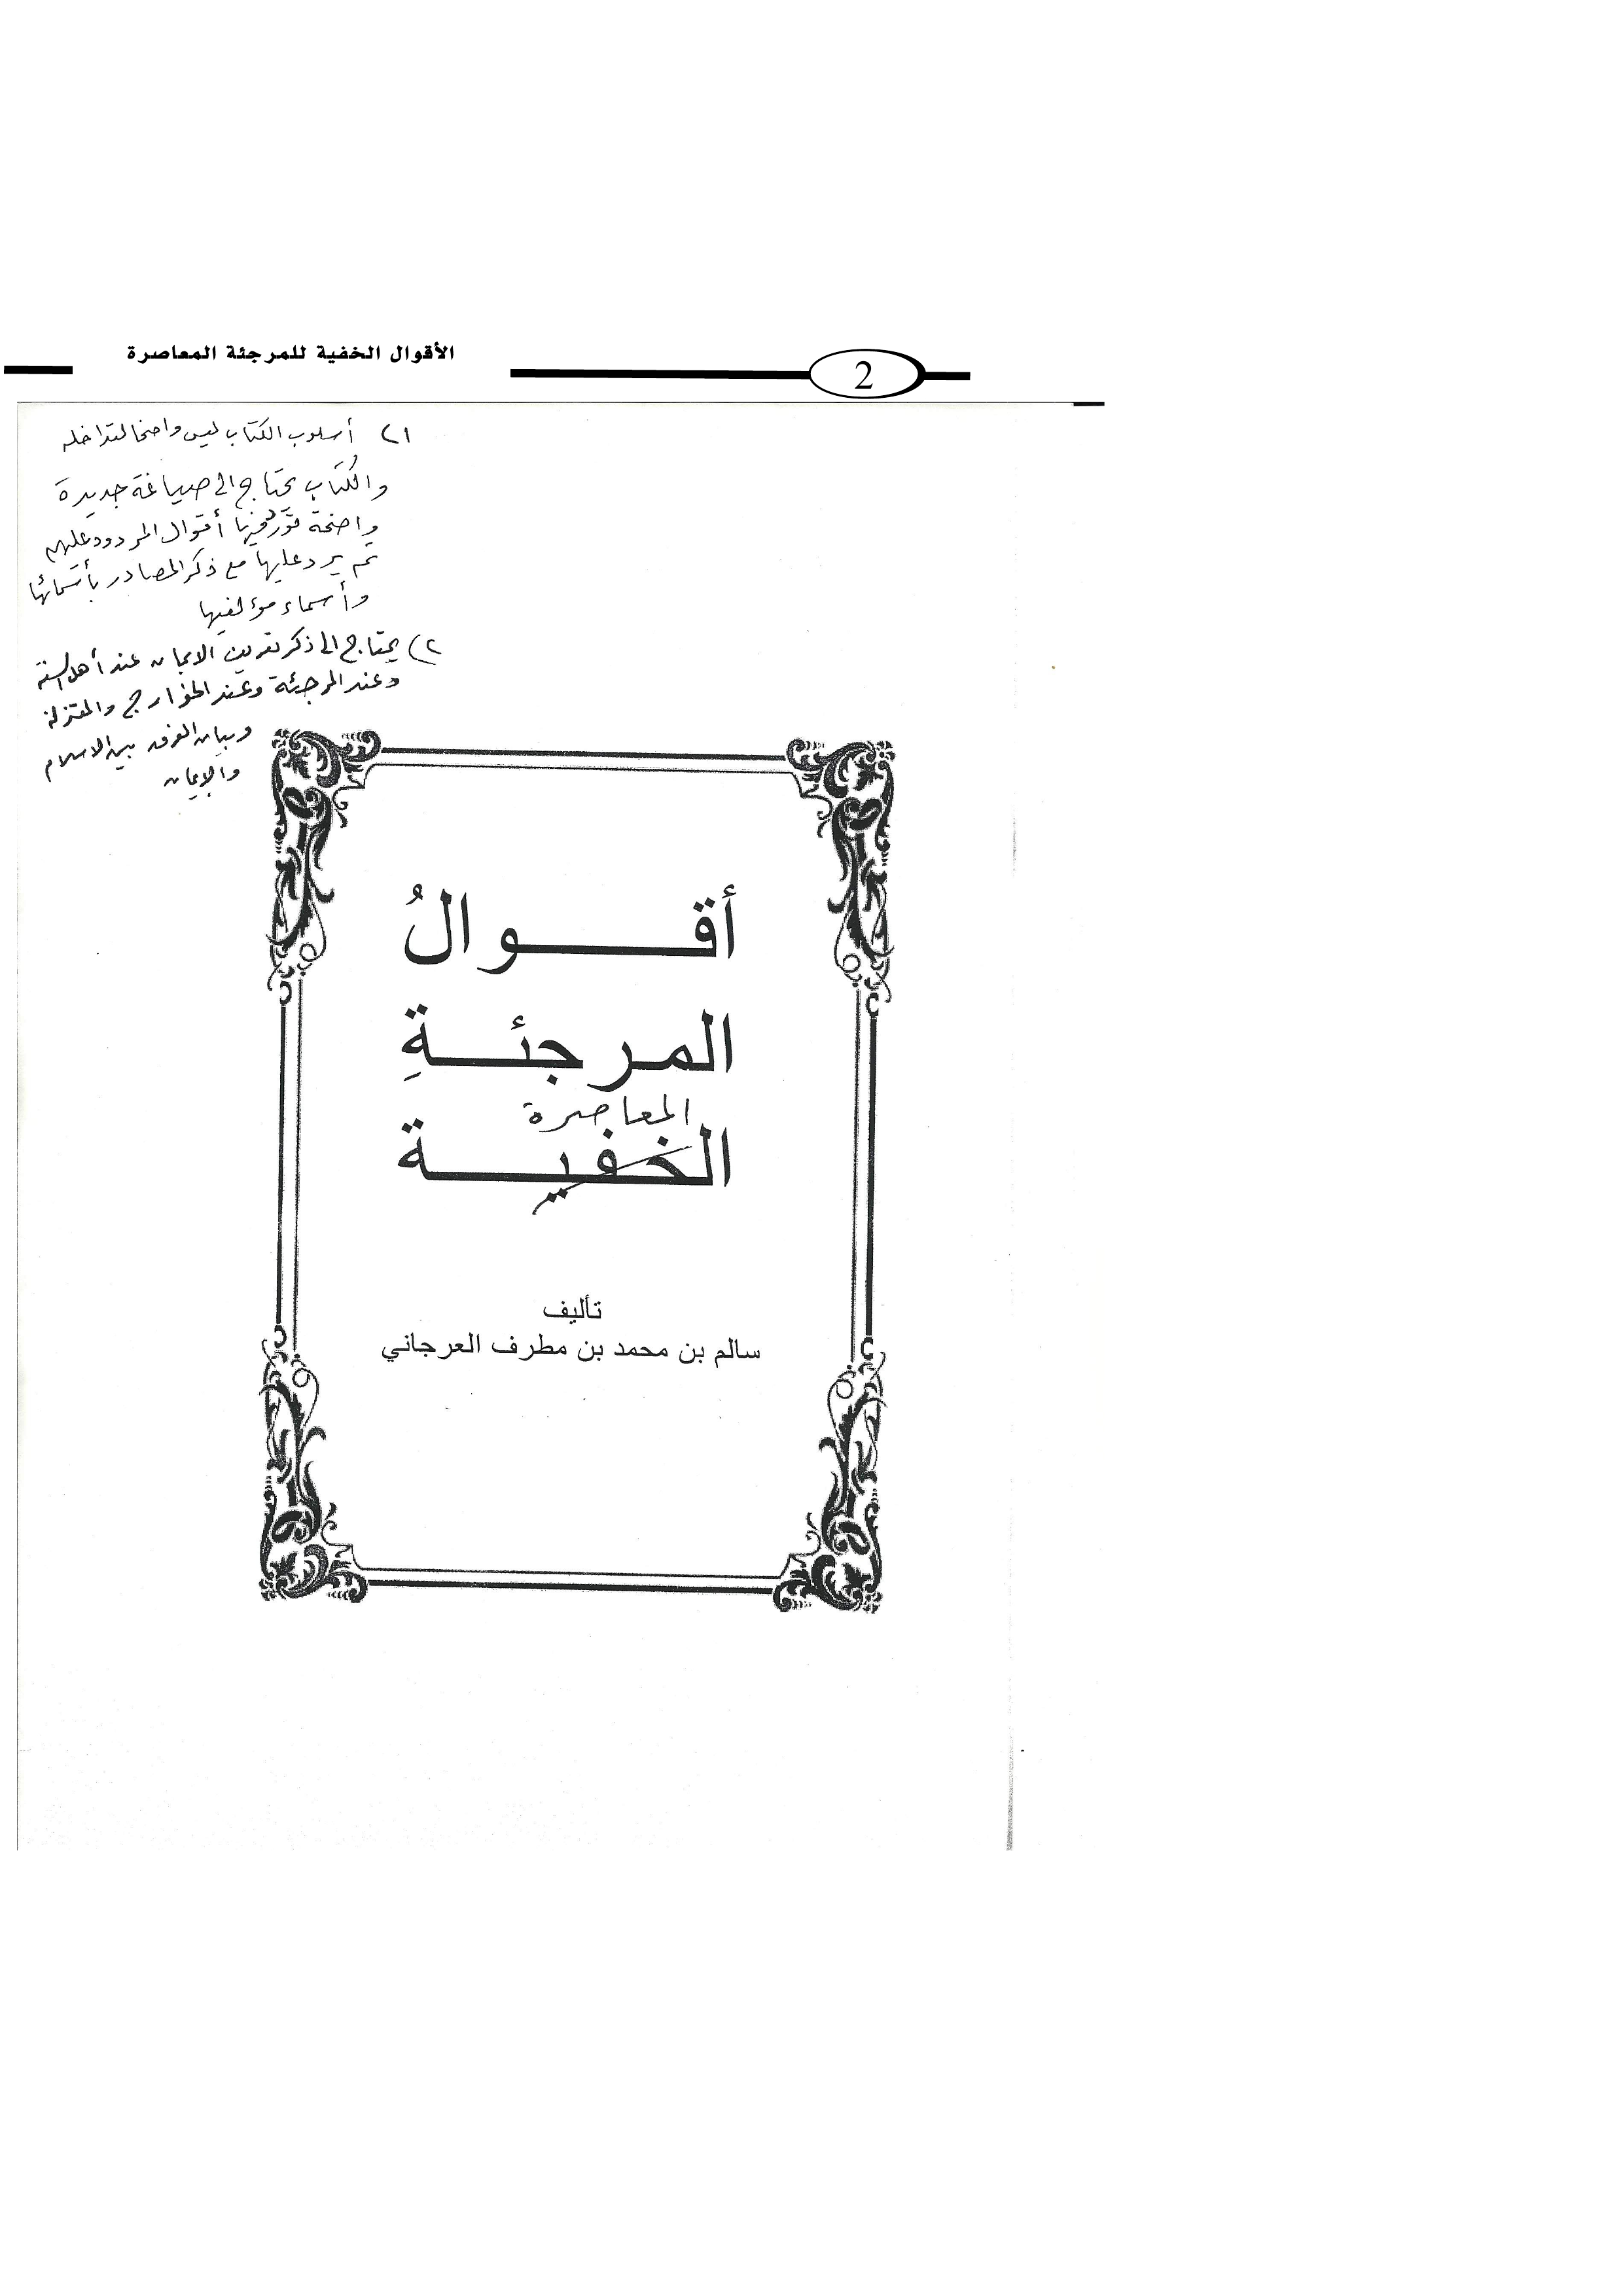 الأقوال الخفية للمرجئة المعاصرة
2
١) أسلوب الكتاب ليس واضحا لتداخله
والكتاب يحتاج الى صياغة جديدة
واضحة تورد فيها أقوال المردود عليهم
ثم يرد عليها مع ذكر المصادر بأسمائها
وأسماء مؤلفيها
٢) يحتاج الى ذكر تعريف الايمان عند أهل السنة
وعند المرجئة وعند الخوارج والمعتزلة
وبيان الفرق بين الاسلام
والإيمان
أقوالُ
المرجئةِ
المعاصرة
الخفية
تأليف
سالم بن محمد بن مطرف العرجاني